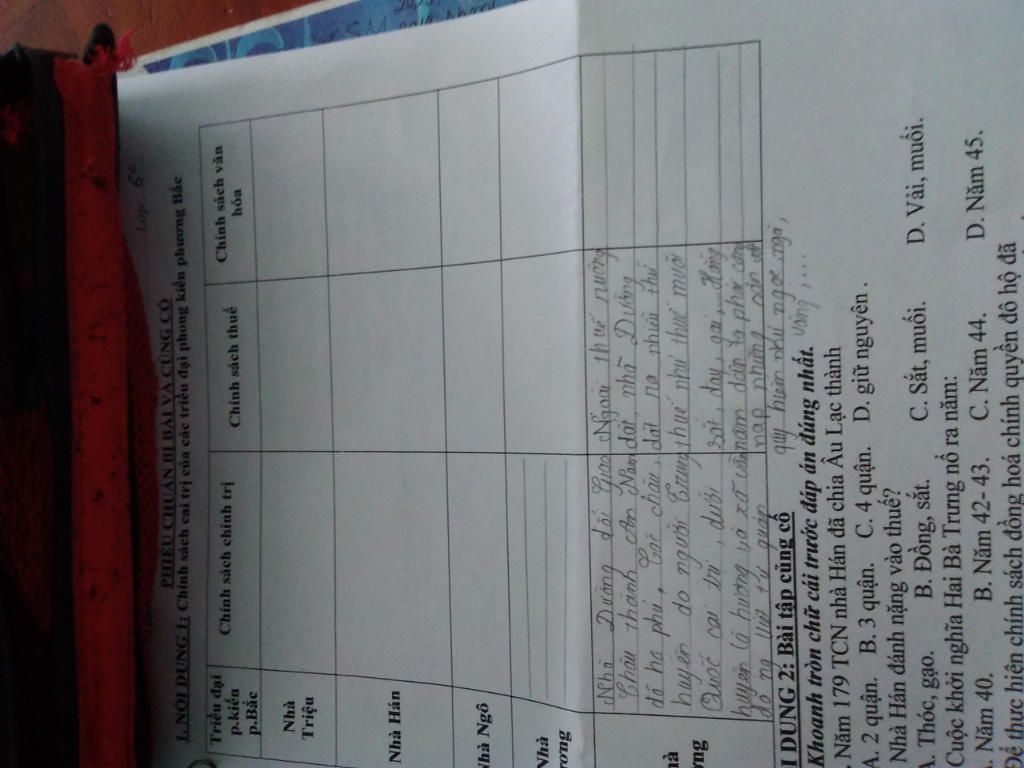 Lớp: 6c
PHIẾU CHUẨN BỊ BÀI VÀ CỦNG CỐ
I. NỘI DUNG 1: Chính sách cai trị của các triều đại phong kiến phương Bắc
Triều đại p.kiến p.Bắc
Chính sách chính trị
Chính sách thuế
Chính sách văn hóa
Nhà Triệu
Nhà Hán
Nhà Ngô
Nhà
ương
ng
Nhà Đường đổi Giao
Châu thành An Nam
đô hộ phủ, các châu,
huyện do người Trung
Quốc cai trị, dưới
huyện là hương và xã vẫn
do ng Việt tự quản
Ngoài thuế ruộng
đất, nhà Đường
đặt ra nhiều thứ
thuế như thuế muối
sắt, đay, gai,... Hàng
năm dân ta phải cống
nạp những sản vật
quý hiếm như ngọc ngà,
vàng,....
I DUNG 2: Bài tập củng cố
Khoanh tròn chữ cái trước đáp án đúng nhất.
. Năm 179 TCN nhà Hán đã chia Âu Lạc thành
A. 2 quận. B. 3 quận. C. 4 quận. D. giữ nguyên .
Nhà Hán đánh nặng vào thuế?
A. Thóc, gạo. B. Đồng, sắt. C. Sắt, muối. D. Vải, muối.
Cuộc khởi nghĩa Hai Bà Trưng nổ ra năm:
. Năm 40. B. Năm 42- 43. C. Năm 44. D. Năm 45.
Để thực hiện chính sách đồng hoá chính quyền đô hộ đã